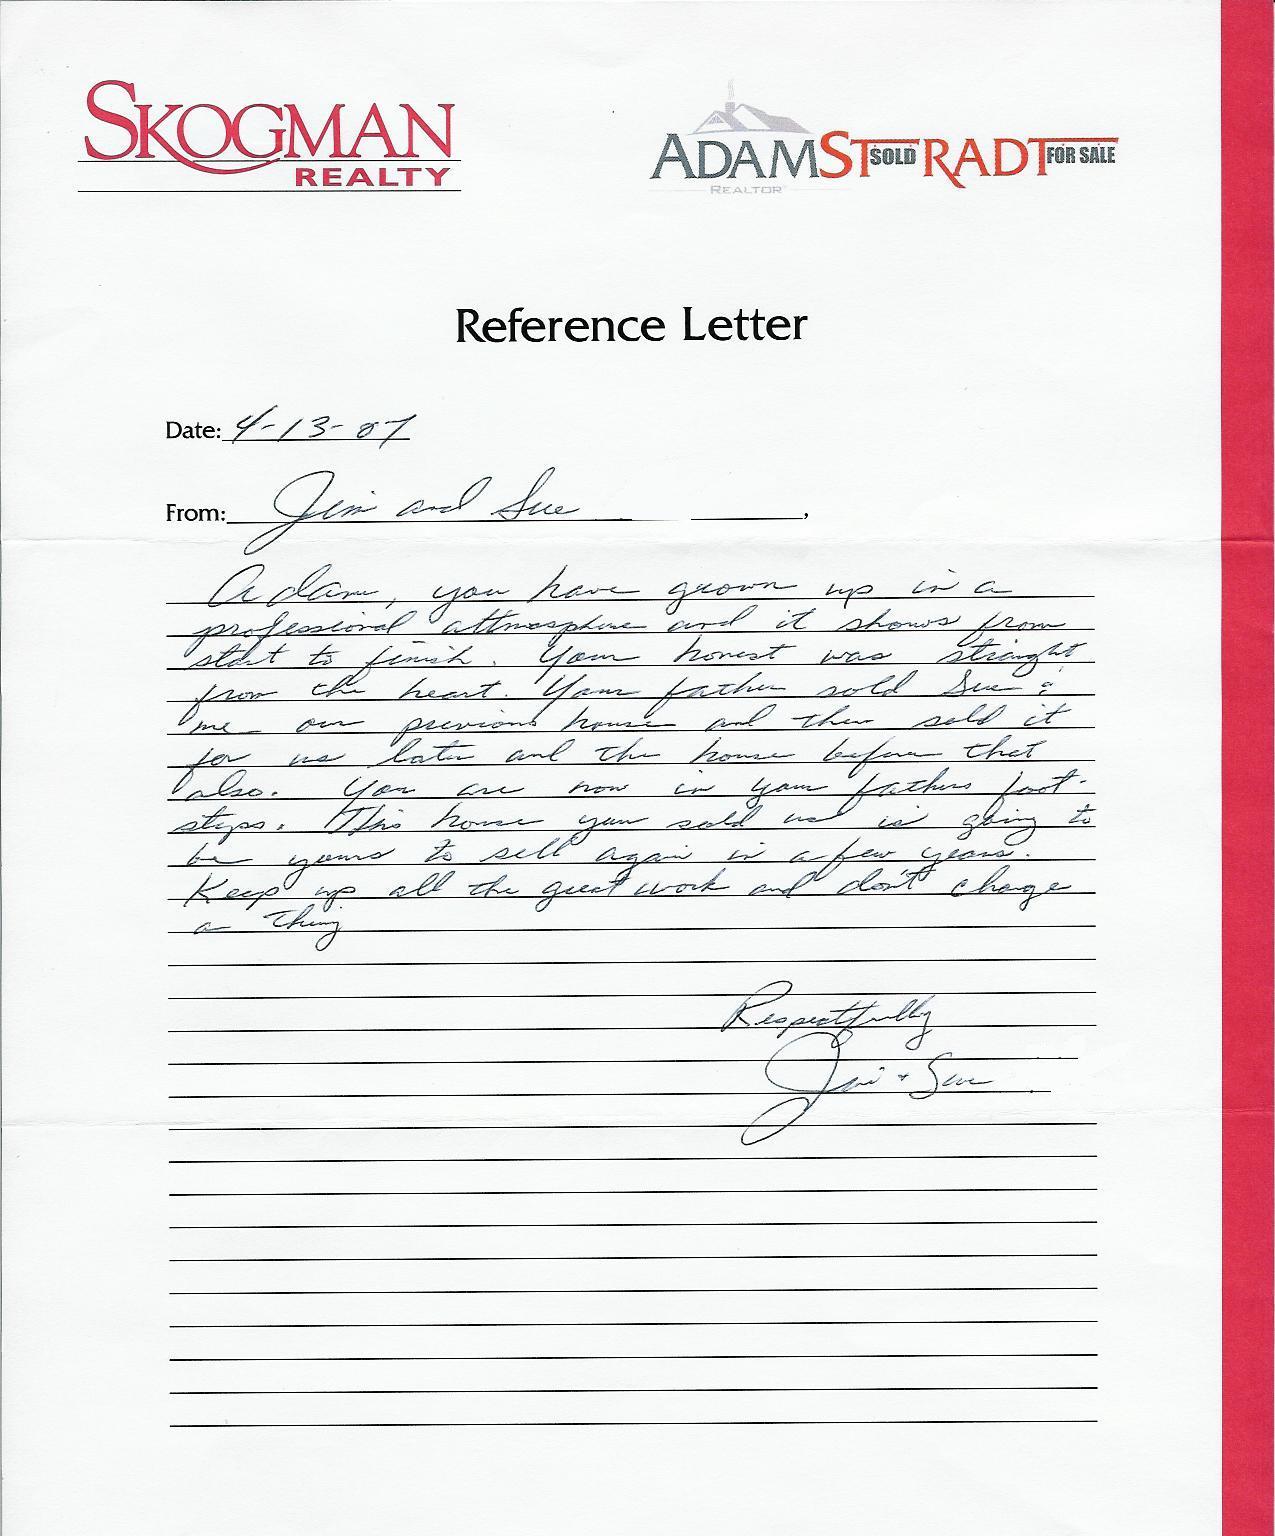 SKOGMAN
REALTY
ADAM STRADT
SOLD
FOR SALE
REALTOR®
Reference Letter
Date: 4-13-07
From: Jim and Sue ,
Adam, you have grown up in a
professional attmosphere and it shows from
start to finish. Your honest was straight
from the heart. Your father sold Sue &
me our previous house and then sold it
for us later and the house before that
also. You are now in your fathers foot-
steps. This house you sold us is going to
be yours to sell again in a few years.
Keep up all the great work and don't change
a thing
Respectfully
Jim + Sue